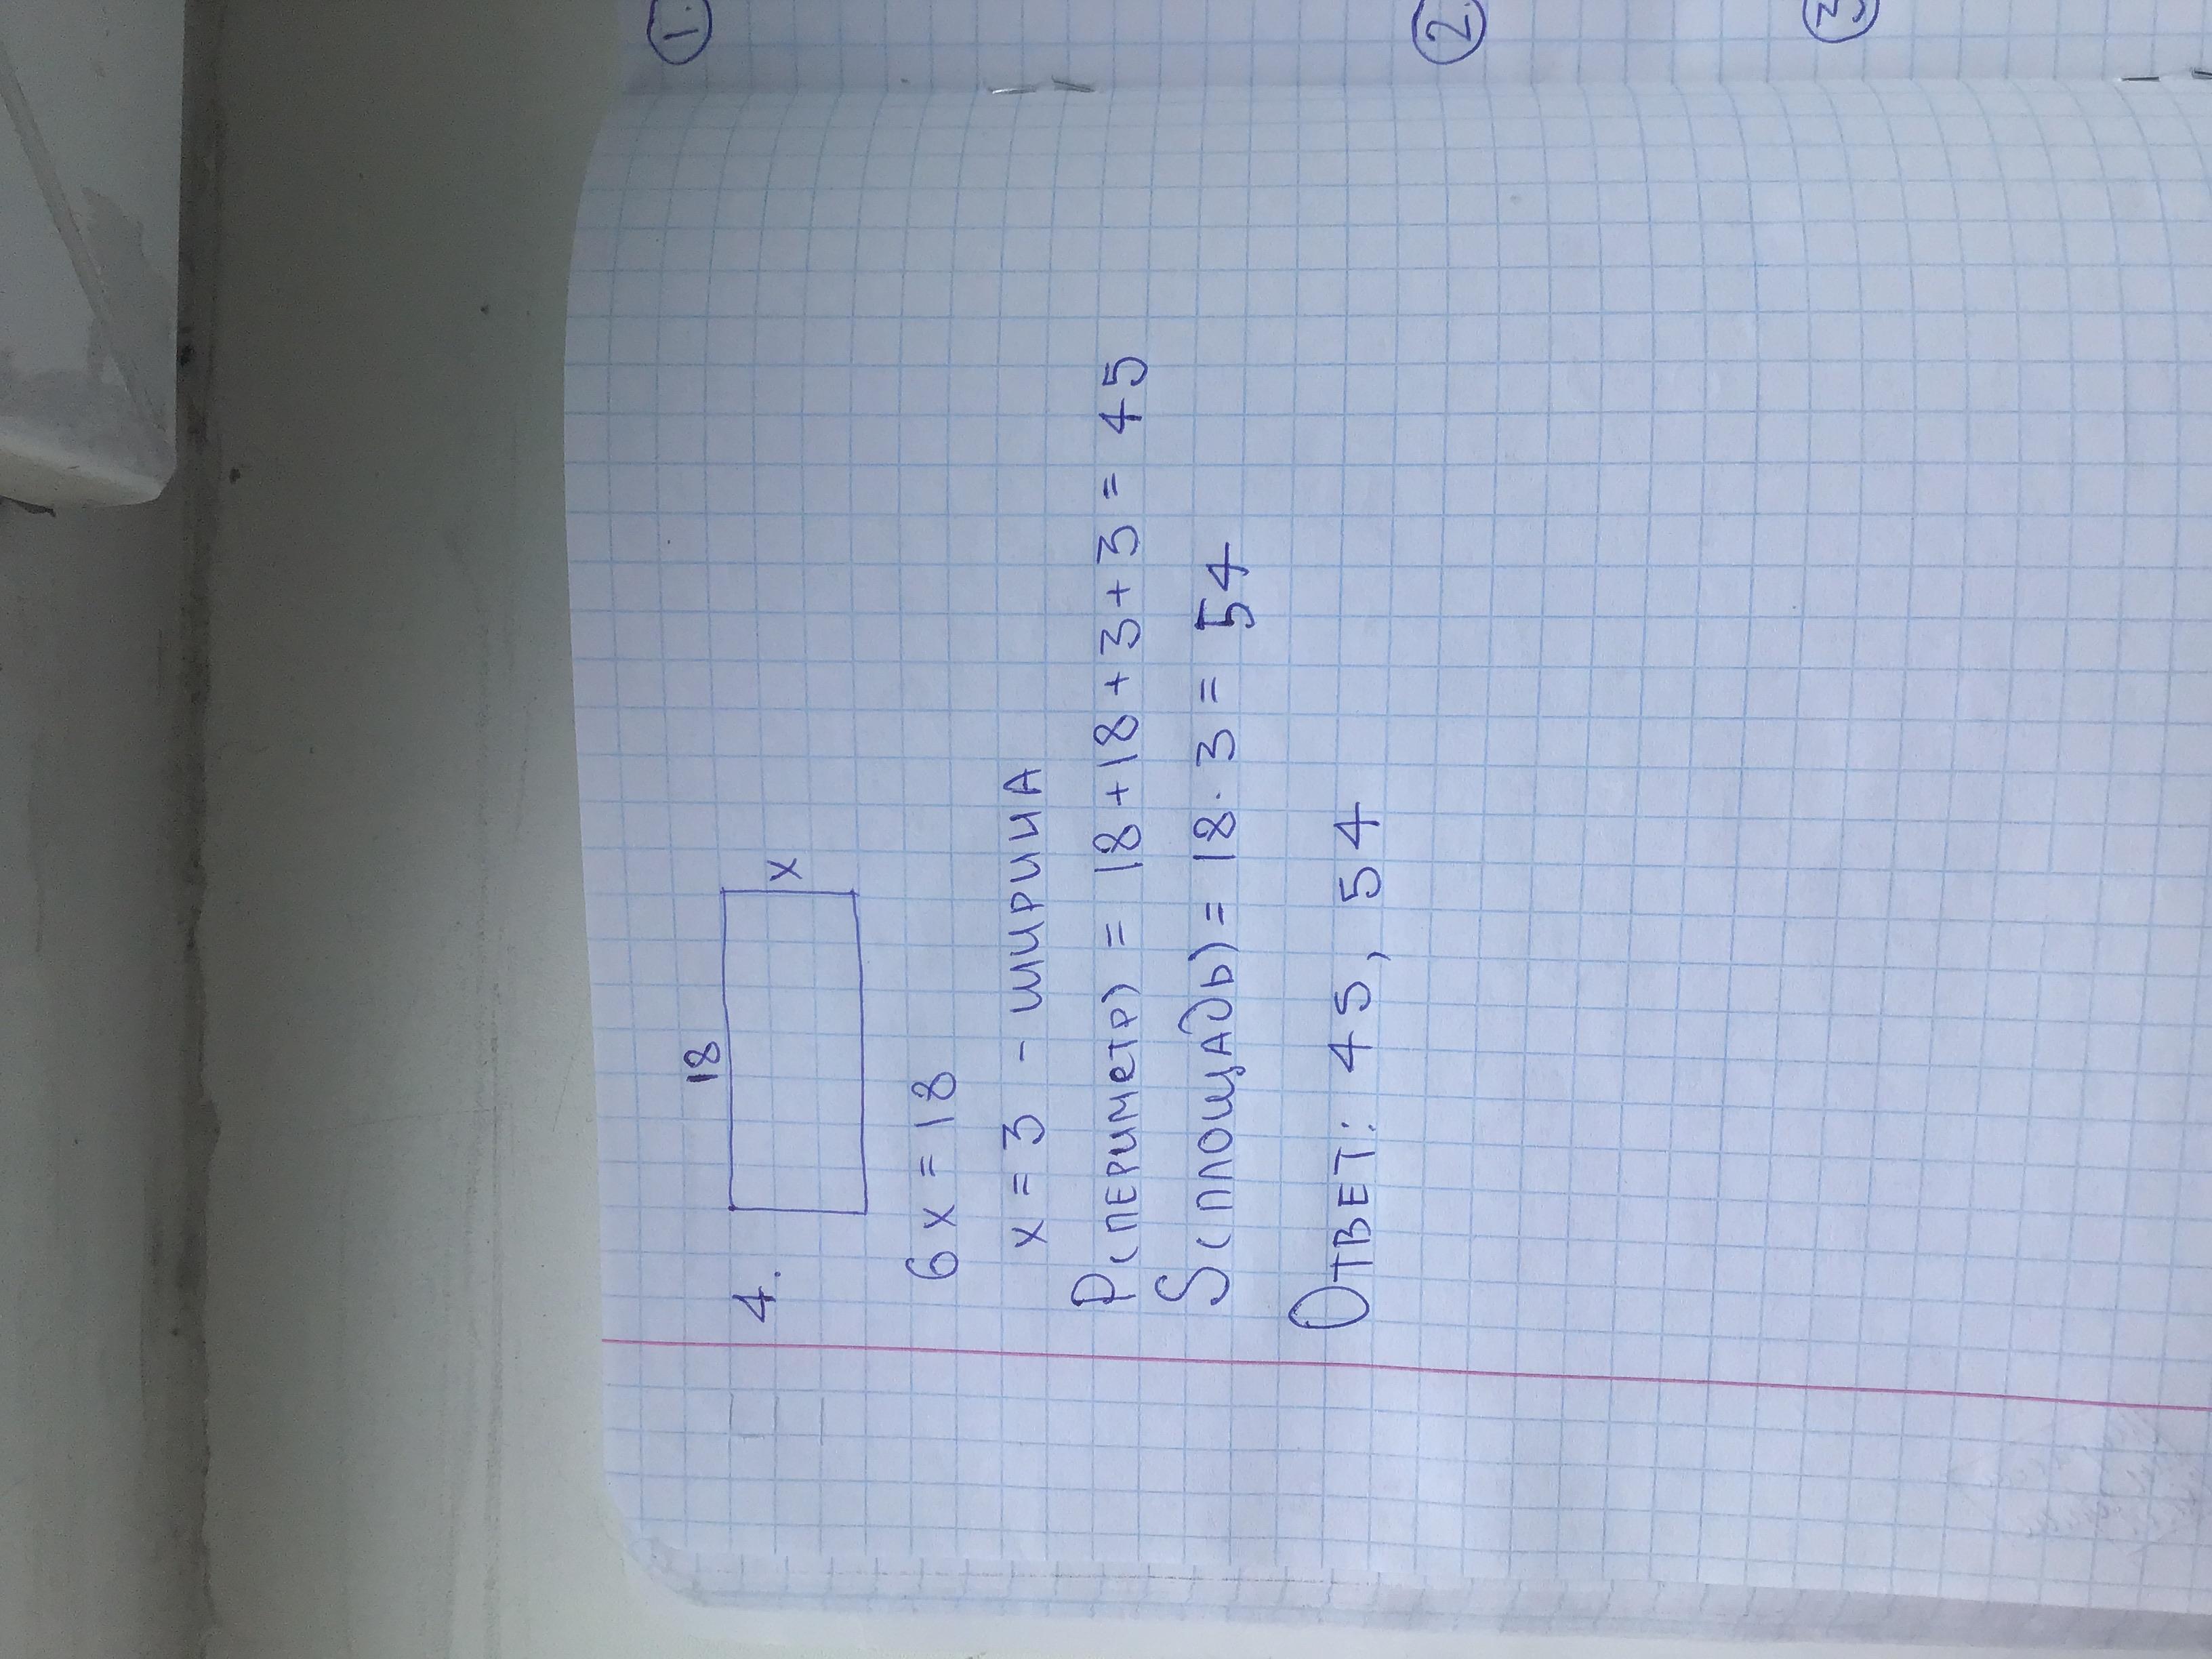 4.
18
x
6x = 18
x = 3 - ширина
P(периметр) = 18+18+3+3 = 45
S(площадь) = 18·3 = 54
Ответ: 45, 54
1.
2.
3